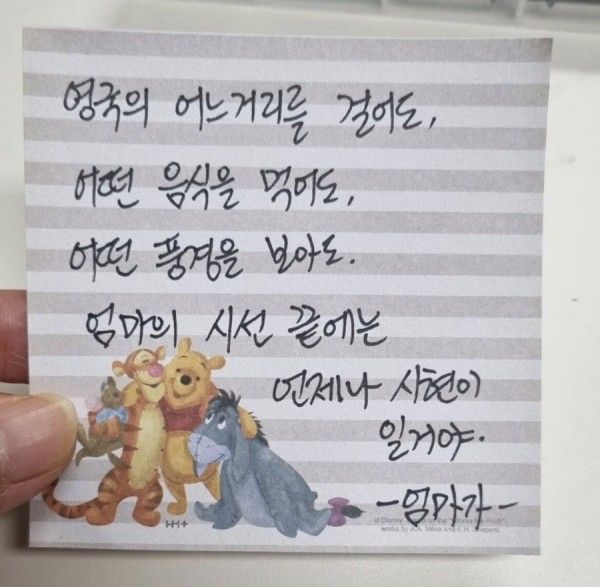 영국의 어느거리를 걸어도,
어떤 음식을 먹어도,
어떤 풍경을 보아도.
엄마의 시선 끝에는
언제나 시현이
일거야.
-엄마가-
© Disney
works by A.A. Milne and E.H. Shepard.